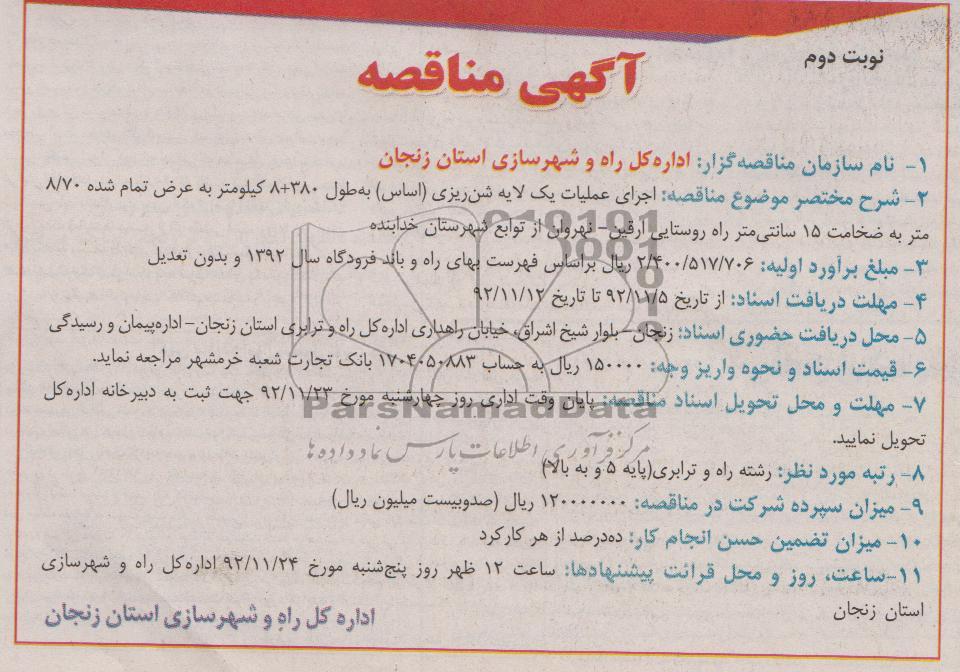 نوبت دوم
آگهی مناقصه
۱- نام سازمان مناقصه‌گزار: اداره‌کل راه و شهرسازی استان زنجان
۲- شرح مختصر موضوع مناقصه: اجرای عملیات یک لایه شن‌ریزی (اساس) به‌طول ۳۸۰+۸ کیلومتر به عرض تمام شده ۸/۷۰
متر به ضخامت ۱۵ سانتی‌متر راه روستایی آرقین- نهروان از توابع شهرستان خدابنده
۳- مبلغ برآورد اولیه: ۲/۴۰۰/۵۱۷/۷۰۶ ریال براساس فهرست بهای راه و باند فرودگاه سال ۱۳۹۲ و بدون تعدیل
۴- مهلت دریافت اسناد: از تاریخ ۹۲/۱۱/۵ تا تاریخ ۹۲/۱۱/۱۲
۵- محل دریافت حضوری اسناد: زنجان- بلوار شیخ اشراق، خیابان راهداری اداره‌کل راه و ترابری استان زنجان- اداره‌پیمان و رسیدگی
۶- قیمت اسناد و نحوه واریز وجه: ۱۵۰۰۰۰ ریال به حساب ۱۷۰۴۰۵۰۸۸۳ بانک تجارت شعبه خرمشهر مراجعه نماید.
۷- مهلت و محل تحویل اسناد مناقصه: پایان وقت اداری روز چهارشنبه مورخ ۹۲/۱۱/۲۳ جهت ثبت به دبیرخانه اداره‌کل
تحویل نمایید.
ParsNamadData
مرکز فرآوری اطلاعات پارس نماد داده ها
۸- رتبه مورد نظر: رشته راه و ترابری(پایه ۵ و به بالا)
۹- میزان سپرده شرکت در مناقصه: ۱۲۰۰۰۰۰۰۰ ریال (صدوبیست میلیون ریال)
۱۰- میزان تضمین حسن انجام کار: ده‌درصد از هر کارکرد
۱۱-ساعت، روز و محل قرائت پیشنهادها: ساعت ۱۲ ظهر روز پنج‌شنبه مورخ ۹۲/۱۱/۲۴ اداره‌کل راه و شهرسازی
استان زنجان
اداره کل راه و شهرسازی استان زنجان